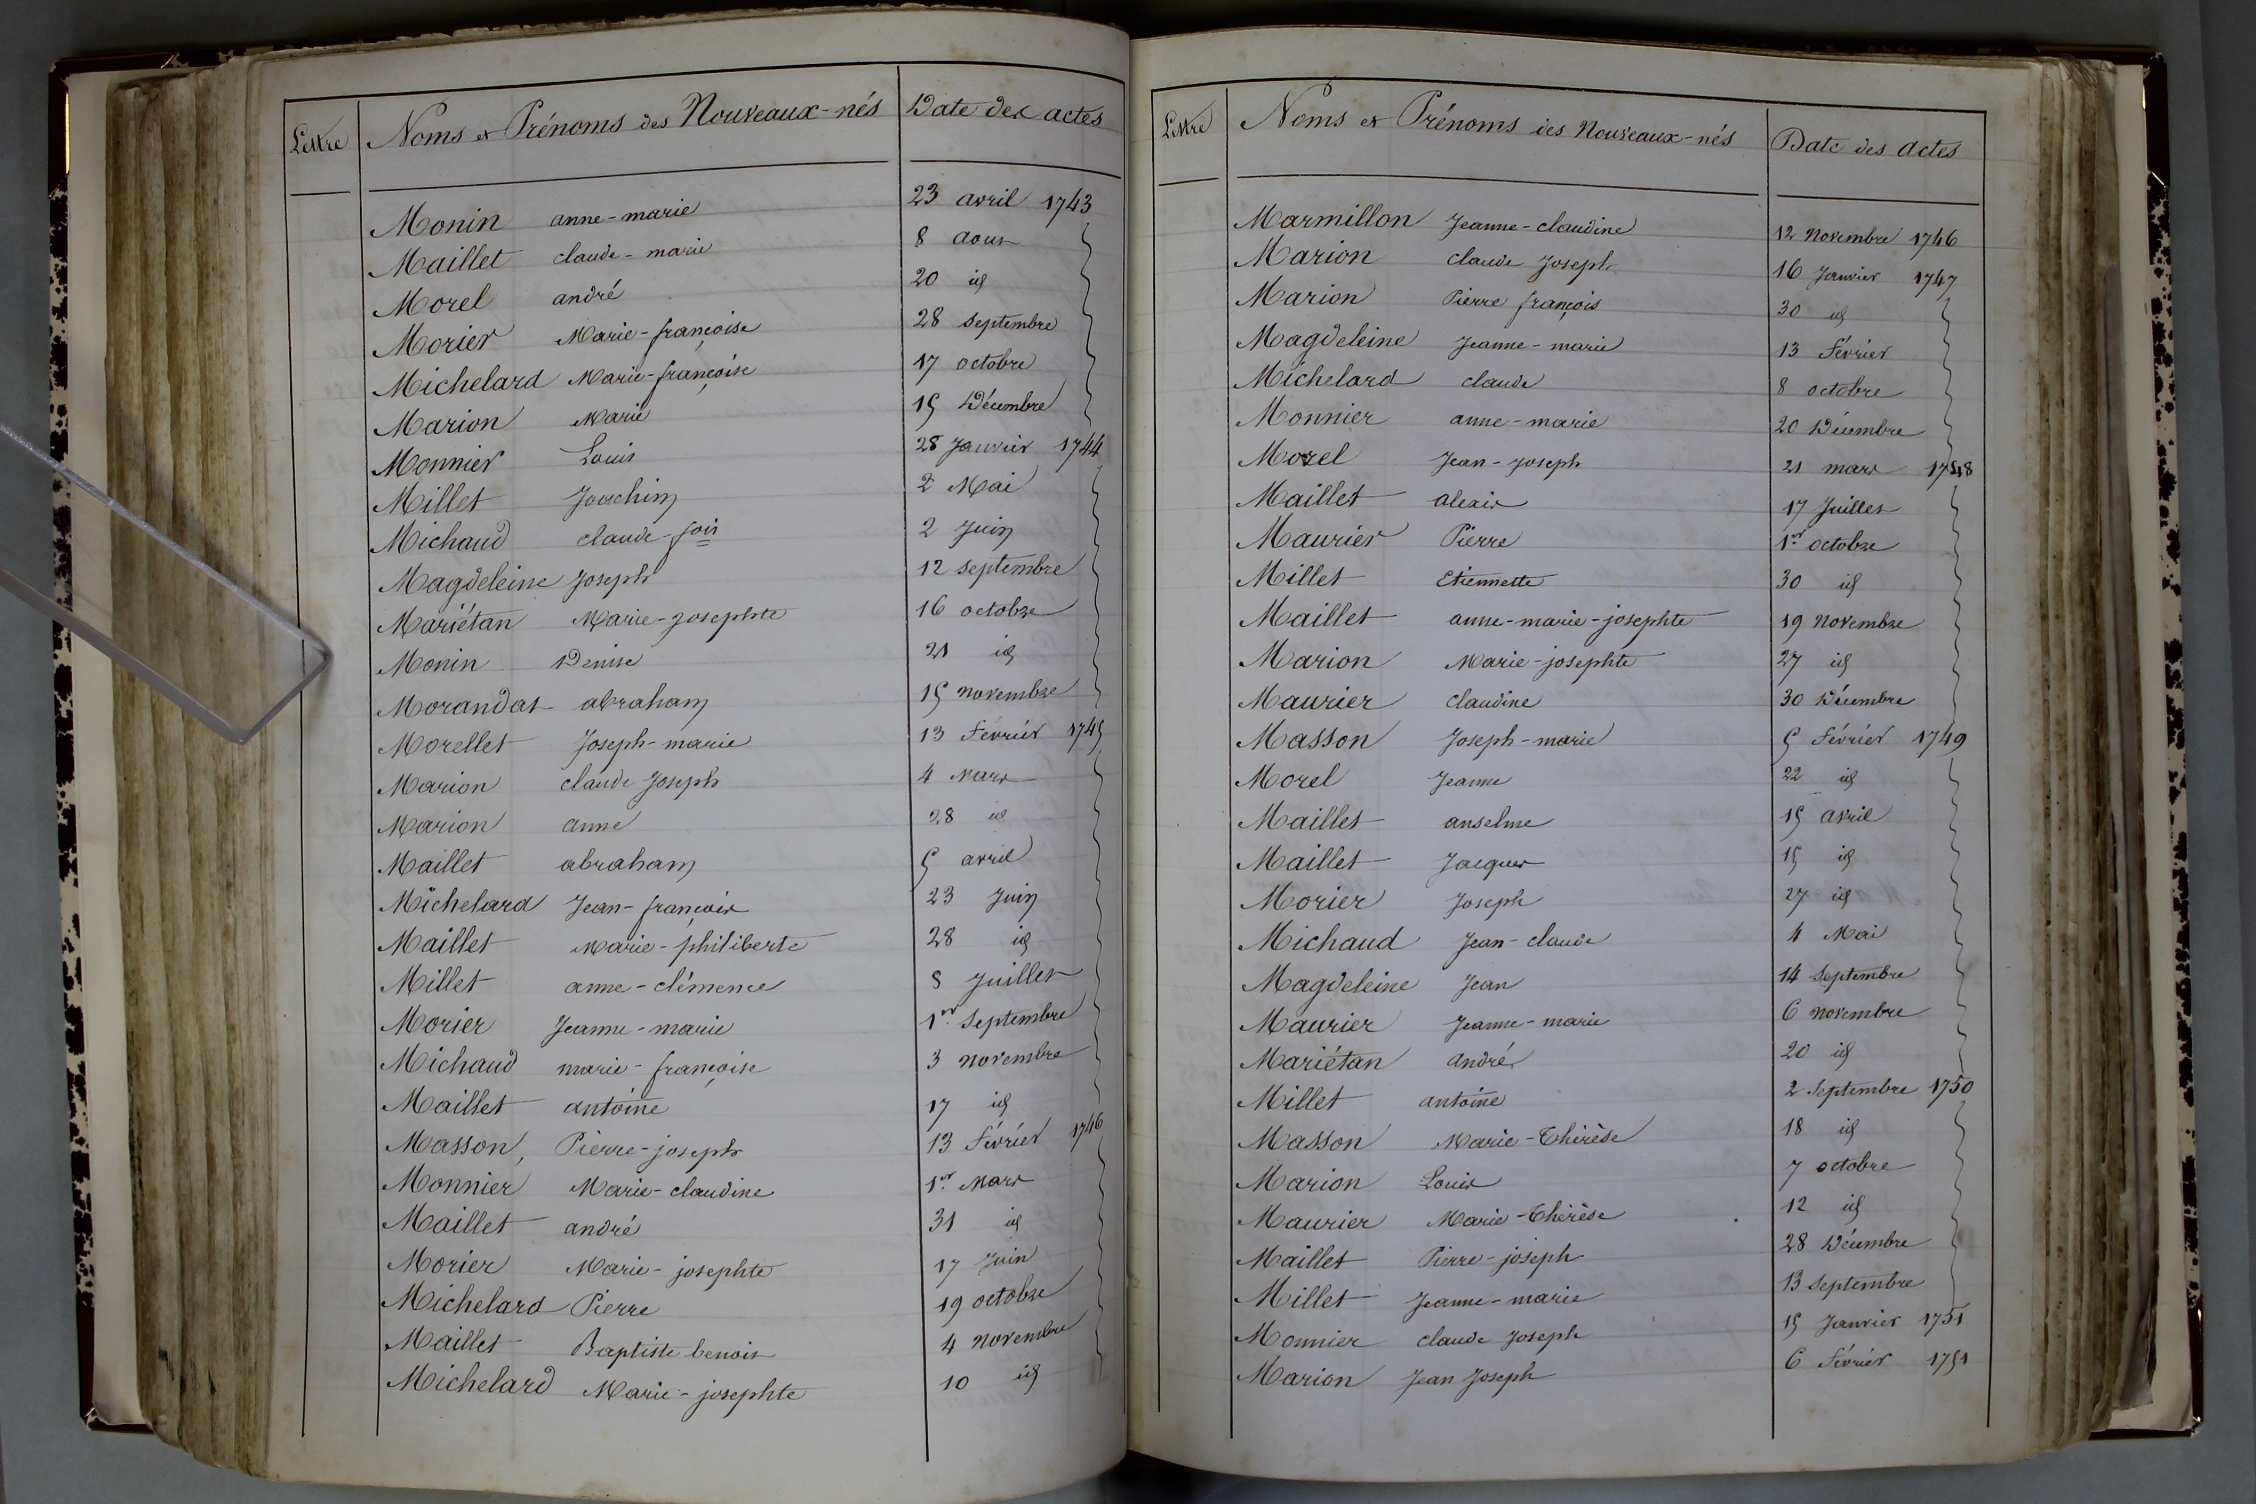 Lettre Noms et Prénoms des Nouveaux-nés Date des actes
Monin anne-marie 23 avril 1743
Maillet claude-marie 8 aout
Morel andré 20 id
Morier Marie-françoise 28 septembre
Michelard Marie-françoise 17 octobre
Marion Marie 15 Décembre
Monnier Louis 28 Janvier 1744
Millet Joachim 2 Mai
Michaud claude-fois 2 Juin
Magdeleine Joseph 12 septembre
Mariétan Marie-josephte 16 octobre
Monin Denise 21 id
Morandat abraham 15 novembre
Morellet Joseph-marie 13 Février 1745
Marion claude Joseph 4 Mars
Marion anne 28 id
Maillet abraham 5 avril
Michelard Jean-françois 23 Juin
Maillet Marie-philiberte 28 id
Millet anne-clémence 8 Juillet
Morier Jeanne-marie 1er septembre
Michaud marie-françoise 3 novembre
Maillet antoine 17 id
Masson, Pierre-joseph 13 Février 1746
Monnier Marie-claudine 1er Mars
Maillet andré 31 id
Morier Marie-josephte 17 Juin
Michelard Pierre 19 octobre
Maillet Baptiste benoit 4 novembre
Michelard Marie-josephte 10 id
Lettre Noms et Prénoms des Nouveaux-nés Date des actes
Marmillon Jeanne-claudine 12 Novembre 1746
Marion claude Joseph 16 Janvier 1747
Marion Pierre françois 30 id
Magdeleine Jeanne-marie 13 Février
Michelard claude 8 octobre
Monnier anne-marie 20 Décembre
Morel Jean-joseph 21 mars 1748
Maillet alexis 17 Juillet
Maurier Pierre 1er octobre
Millet Etiennette 30 id
Maillet anne-marie-josephte 19 Novembre
Marion Marie-josephte 27 id
Maurier claudine 30 Décembre
Masson Joseph-marie 5 Février 1749
Morel Jeanne 22 id
Maillet anselme 15 avril
Maillet Jacques 15 id
Morier Joseph 27 id
Michaud Jean-claude 4 Mai
Magdeleine Jean 14 Septembre
Maurier Jeanne-marie 6 novembre
Mariétan andré 20 id
Millet antoine 2 Septembre 1750
Masson Marie-Thérèse 18 id
Marion Louis 7 octobre
Maurier Marie-Thérèse 12 id
Maillet Pierre-joseph 28 Décembre
Millet Jeanne-marie 13 Septembre
Monnier claude Joseph 15 Janvier 1751
Marion Jean Joseph 6 Février 1751